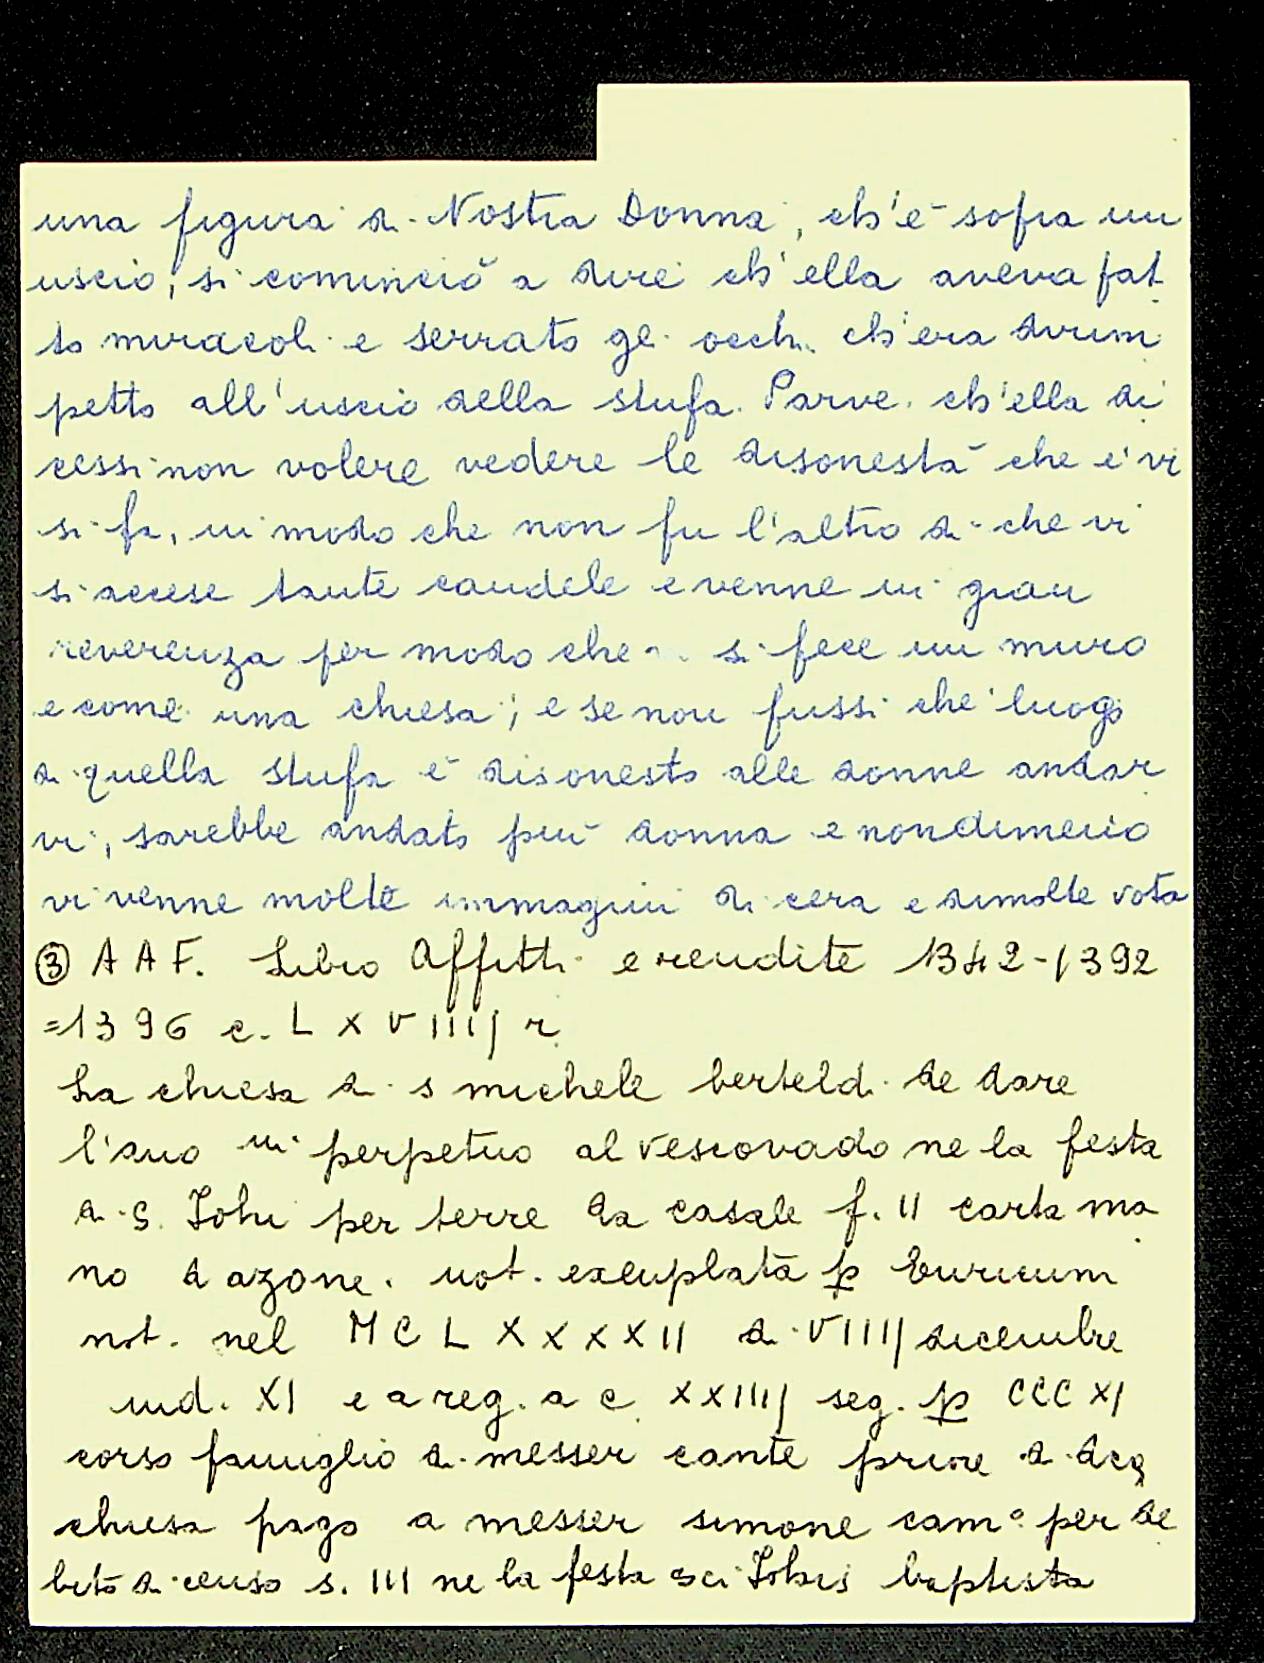 una figura di Nostra Donna, ch'è sopra un
uscio, si cominciò a dire ch'ella aveva fat
to miracoli e serrato gli occhi ch'era dirim
petto all'uscio della stufa. Parve ch'ella di
cessi non volere vedere le disonestà che e' vi
si fa, in modo che non fu l'altro dì che vi
si accese tante candele e venne in gran
reverenza per modo che si fece un muro
e come una chiesa; e se non fussi che 'luogo
di quella stufa è disonesto alle donne andar
vi, sarebbe andato più donna e nondimeno
vi venne molte immagini di cera e dimolte vota
③ A A F. Libro Affitti e rendite 1342-1392
=1396 c. L X V IIII r.
La chiesa di s michele berteldi de dare
l'ano in perpetuo al vescovado ne la festa
di S. Johi per terre da casale f. II carta ma
no d azone. not. exemplata p
not. nel M C L X X X X II di VIIII dicembre
ind. XI e a reg. a c. XXIIII seg. p CCC XI
corso famiglio di messer cante priore di dca
chiesa pago a messer simone cam° per de
bito di censo s. III ne la festa sci Johis baptista